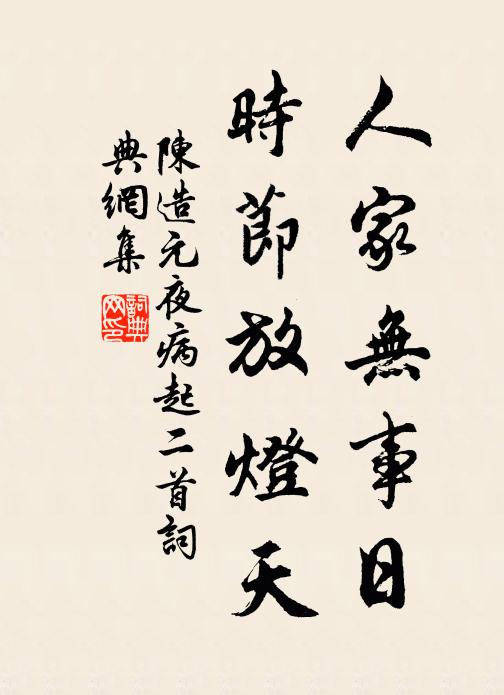 人家無事日
時節放燈天
陳造元夜病起二首詞
典網集
詞典網印